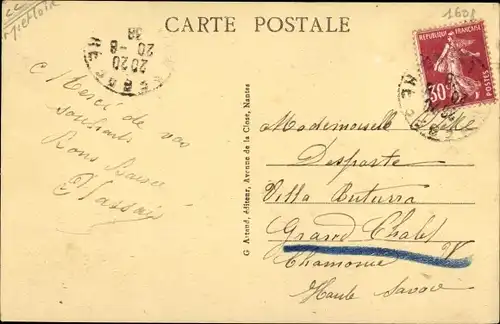 CARTE POSTALE
1608
REPUBLIQUE FRANÇAISE
30
POSTES
2020
20-8
38
Merci de vos
souhaits
Bons Baisers
G Artaud, éditeur, Avenue de la Close, Nantes
Mademoiselle
Desporte
Villa
Grand Chalet
Chamonix
Haute Savoie